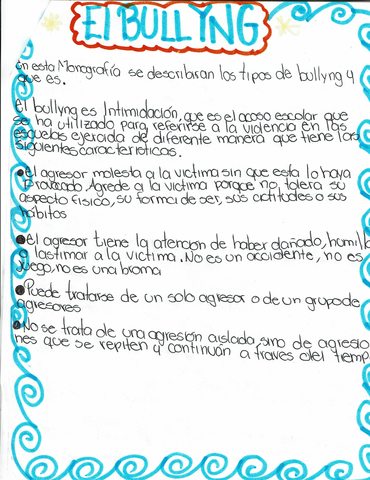 El BULLYNG
En esta Monografía se describiran los tipos de bullyng y
que es.
El bullyng es Intimidación, que es el acoso escolar que
se ha utilizado para referirse a la violencia en las
escuelas ejercida de diferente manera que tiene las
siguientes caracteristicas.
•el agresor molesta a la victima sin que esta lo haya
Provocado, Agrede a la victima porque no tolera su
aspecto Fisico, su forma de ser, sus actitudes o sus
habitos
•el agresor tiene la atencion de haber dañado, humill
a lastimar a la victima. No es un accidente, no es
juego, no es una broma
•Puede tratarse de un solo agresor o de un grupo de
agresores
•No se trata de una agresión aislada, sino de agresio
nes que se repiten y continuan a traves del temp